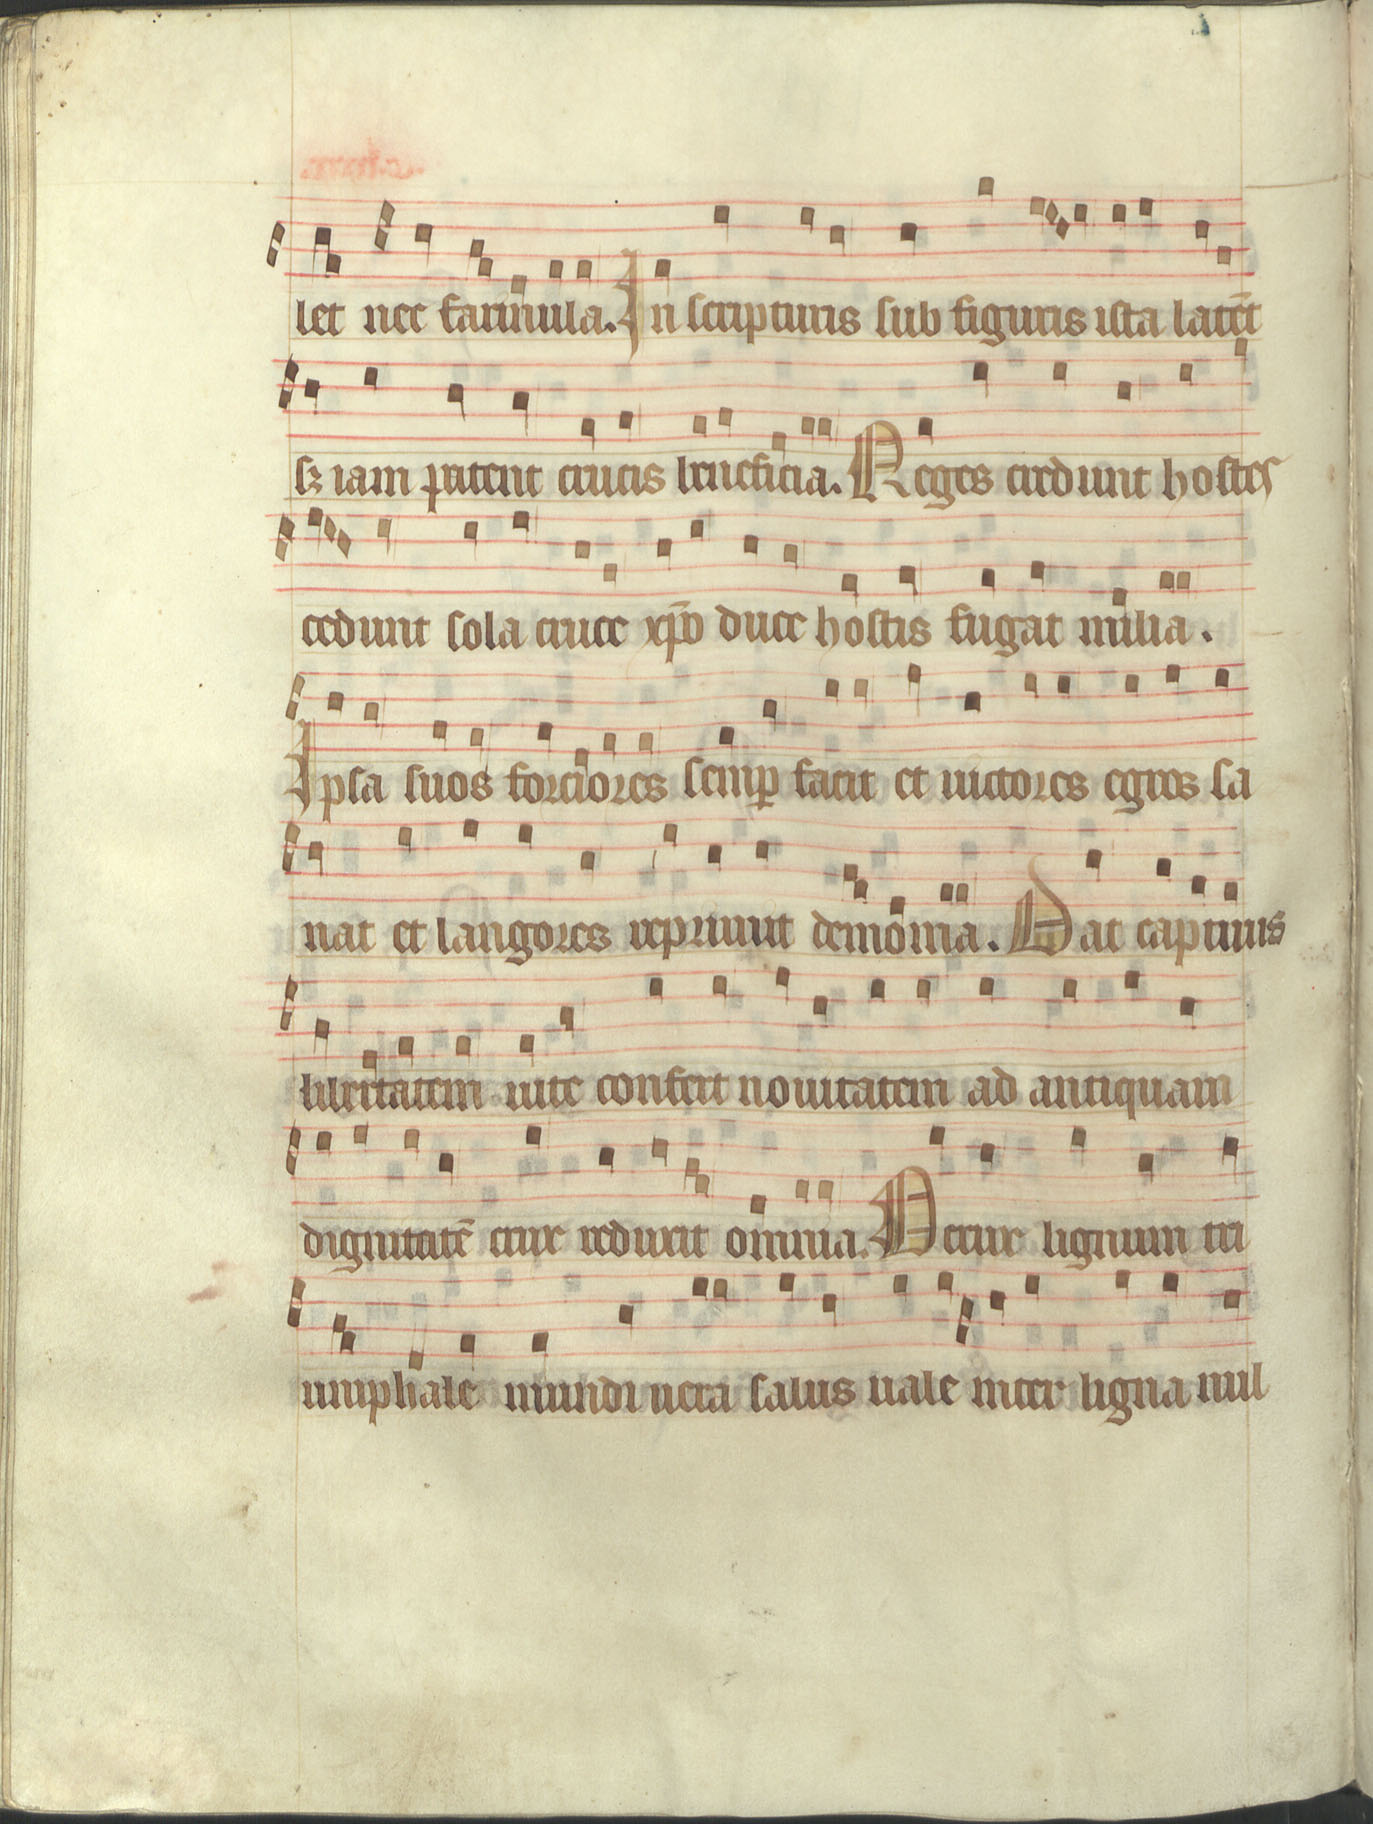 let nec farinula. In scripturis sub figuris ista latēt
sꝫ iam patent crucis beneficia. Reges credunt hostes
cedunt sola cruce xp̄o duce hostis fugat milia.
Ipsa suos forciores semꝑ facit et uictores egros sa
nat et langores reprimit demonia. Dat captiuis
libertatem uite confert nouitatem ad antiquam
dignitatē crux reduxit omnia. O crux lignum tri
umphale mundi uera salus uale inter ligna nul